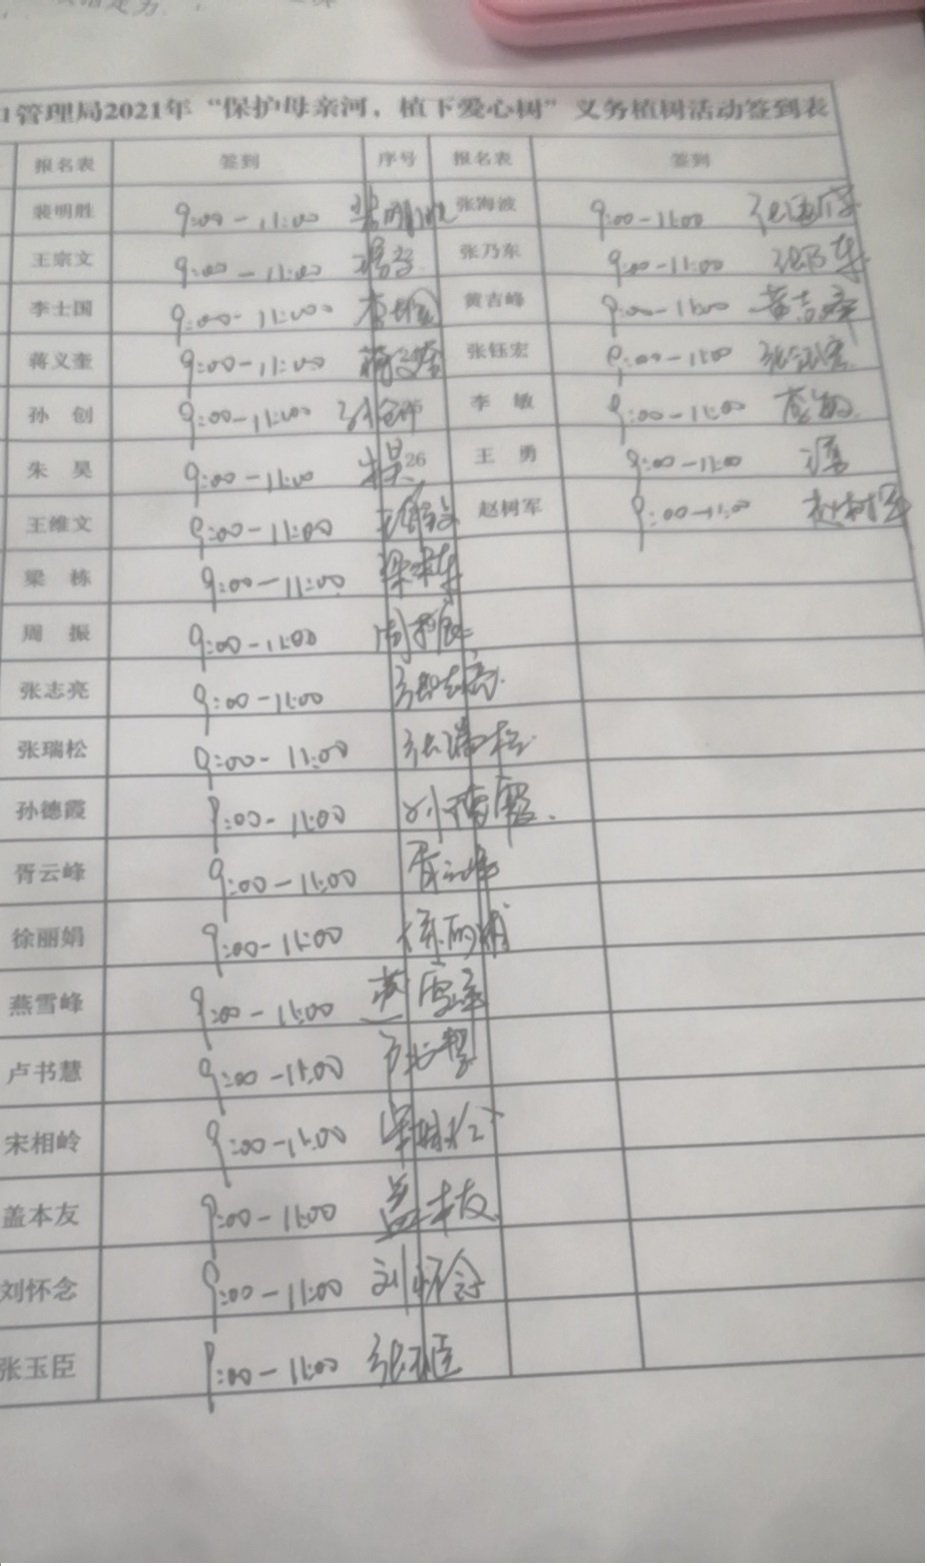 管理局2021年“保护母亲河，植下爱心树”义务植树活动签到表
报名表 签到 序号 报名表 签到
裴明胜 9:00-11:00 裴明胜 张海波 9:00-11:00 张海波
王宗文 9:00-11:00 张乃东 9:00-11:00 张乃东
李士国 9:00-11:00 李士国 黄吉峰 9:00-11:00 黄吉峰
蒋义奎 9:00-11:00 蒋义奎 张钰宏 9:00-11:00 张钰宏
孙 创 9:00-11:00 孙创 李 敏 9:00-11:00 李敏
朱 昊 9:00-11:00 朱昊 26 王 勇 9:00-11:00 王勇
王维文 9:00-11:00 王维文 赵树军 9:00-11:00 赵树军
梁 栋 9:00-11:00 梁栋
周 振 9:00-11:00 周振
张志亮 9:00-11:00 张志亮
张瑞松 9:00-11:00 张瑞松
孙德霞 9:00-11:00 孙德霞
胥云峰 9:00-11:00 胥云峰
徐丽娟 9:00-11:00 徐丽娟
燕雪峰 9:00-11:00 燕雪峰
卢书慧 9:00-11:00 卢书慧
宋相岭 9:00-11:00 宋相岭
盖本友 9:00-11:00 盖本友
刘怀念 9:00-11:00 刘怀念
张玉臣 9:00-11:00 张玉臣